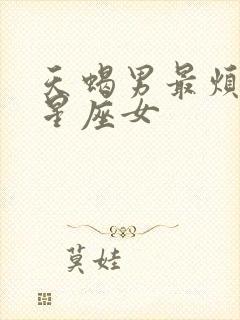 天蝎男最烦
星座女
莫娃